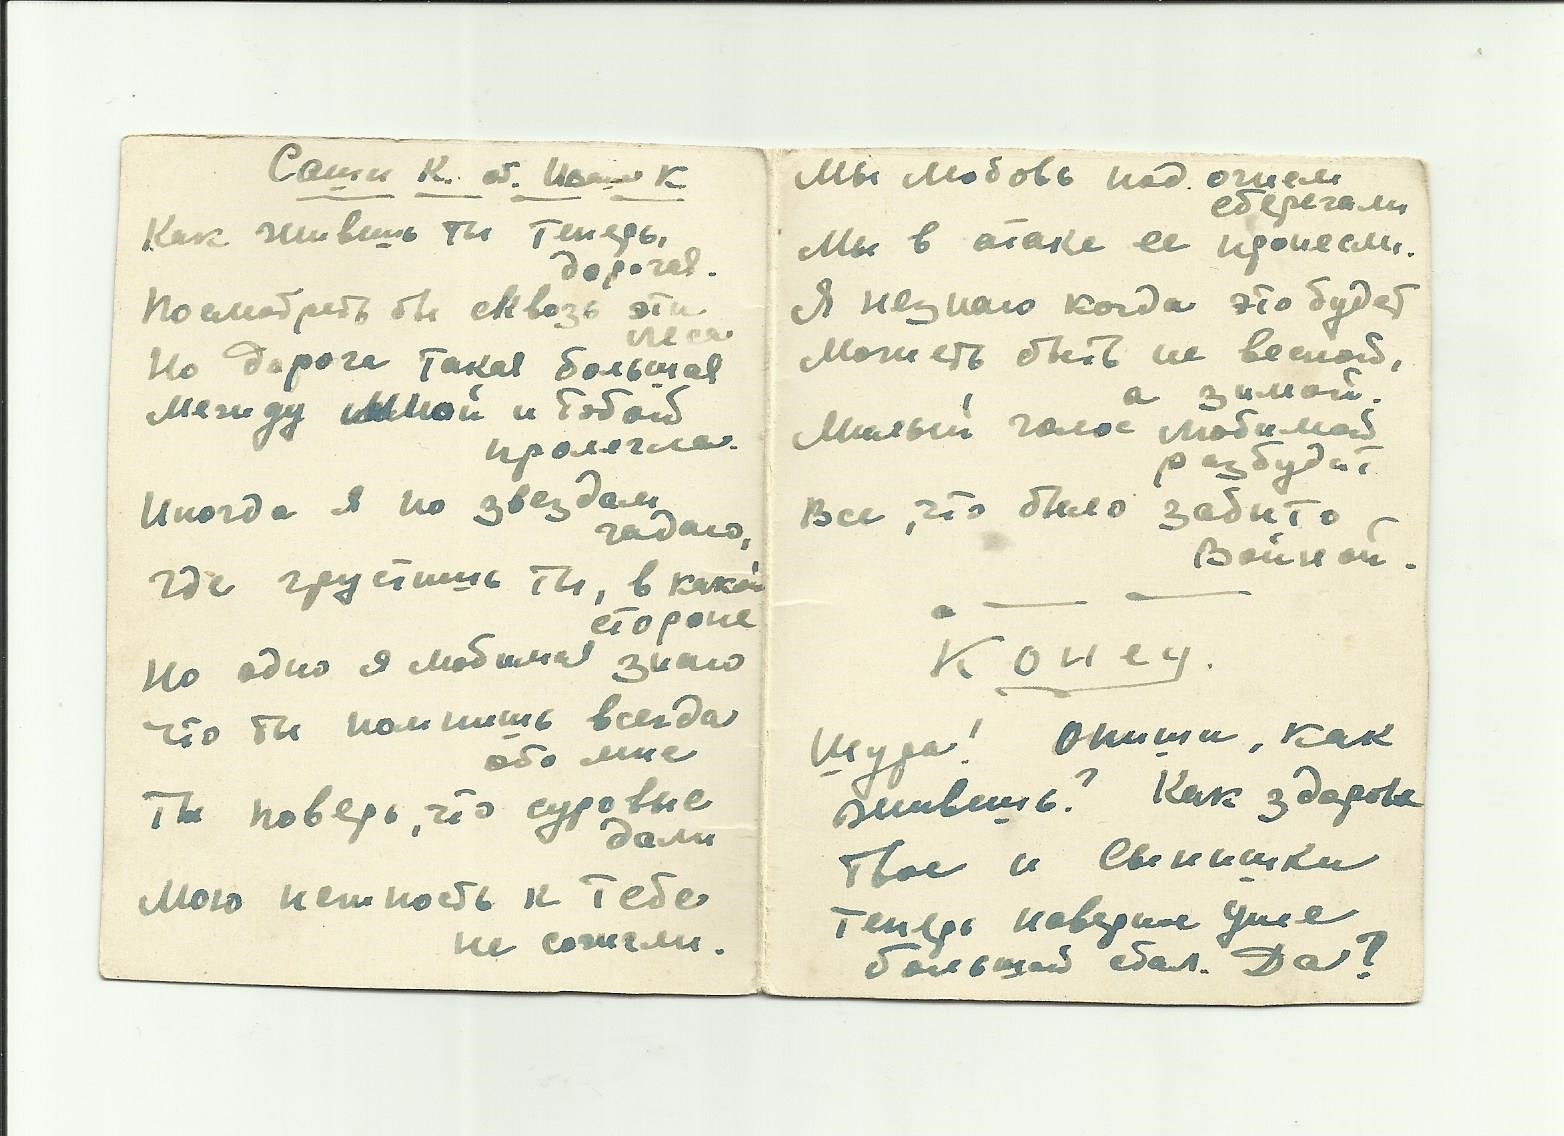 Саши К. от. К
Как живешь ты теперь,
дорогая.
Посмотреть бы сквозь эти
леса
Но дорога такая большая
Между мной и тобой
пролегла.
Иногда я по звездам
гадаю,
где грустишь ты, в какой
стороне
Но одно я любимая знаю
что ты помнишь всегда
обо мне
Ты поверь, что суровые
дали
Мою нежность к тебе
не сожгли.
Мы любовь под огнем
сберегали
Мы в атаке ее пронесли.
Я незнаю когда это будет
Может быть не весной,
а зимой.
Милый голос любимой
разбудит
Все, что было забыто
Войной.
Конец.
Шура! Опиши, как
живешь? Как здоровье
твое и Сынишки
теперь наверное уже
большой стал. Да?